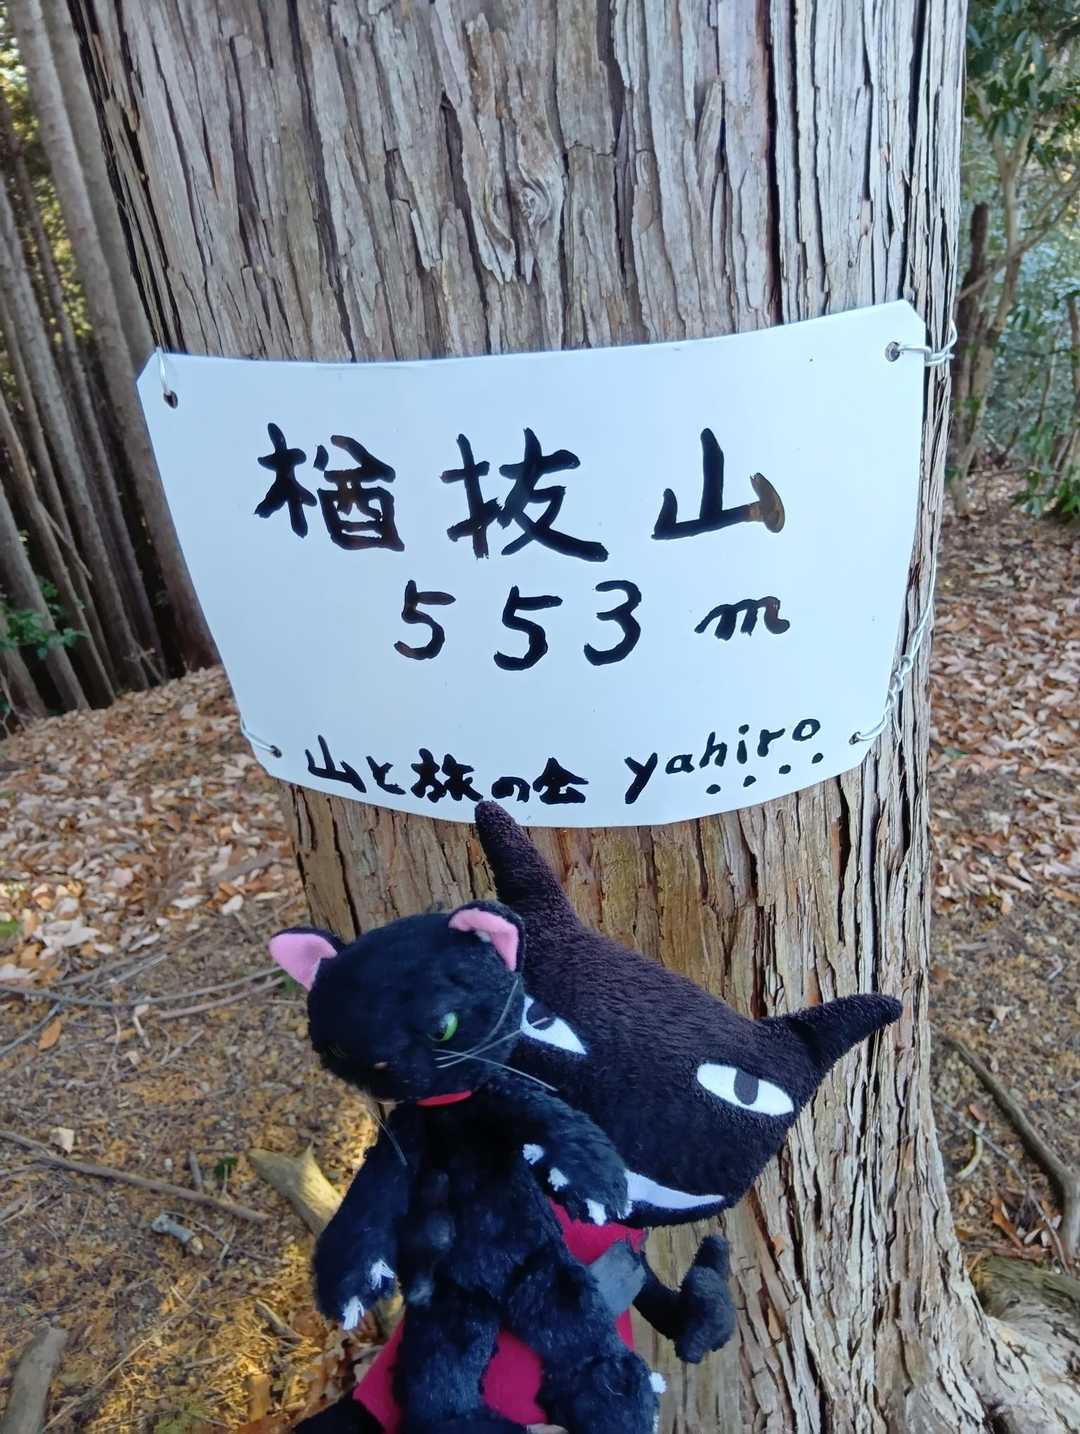 楢抜山
553m
山と旅の会 yahiro